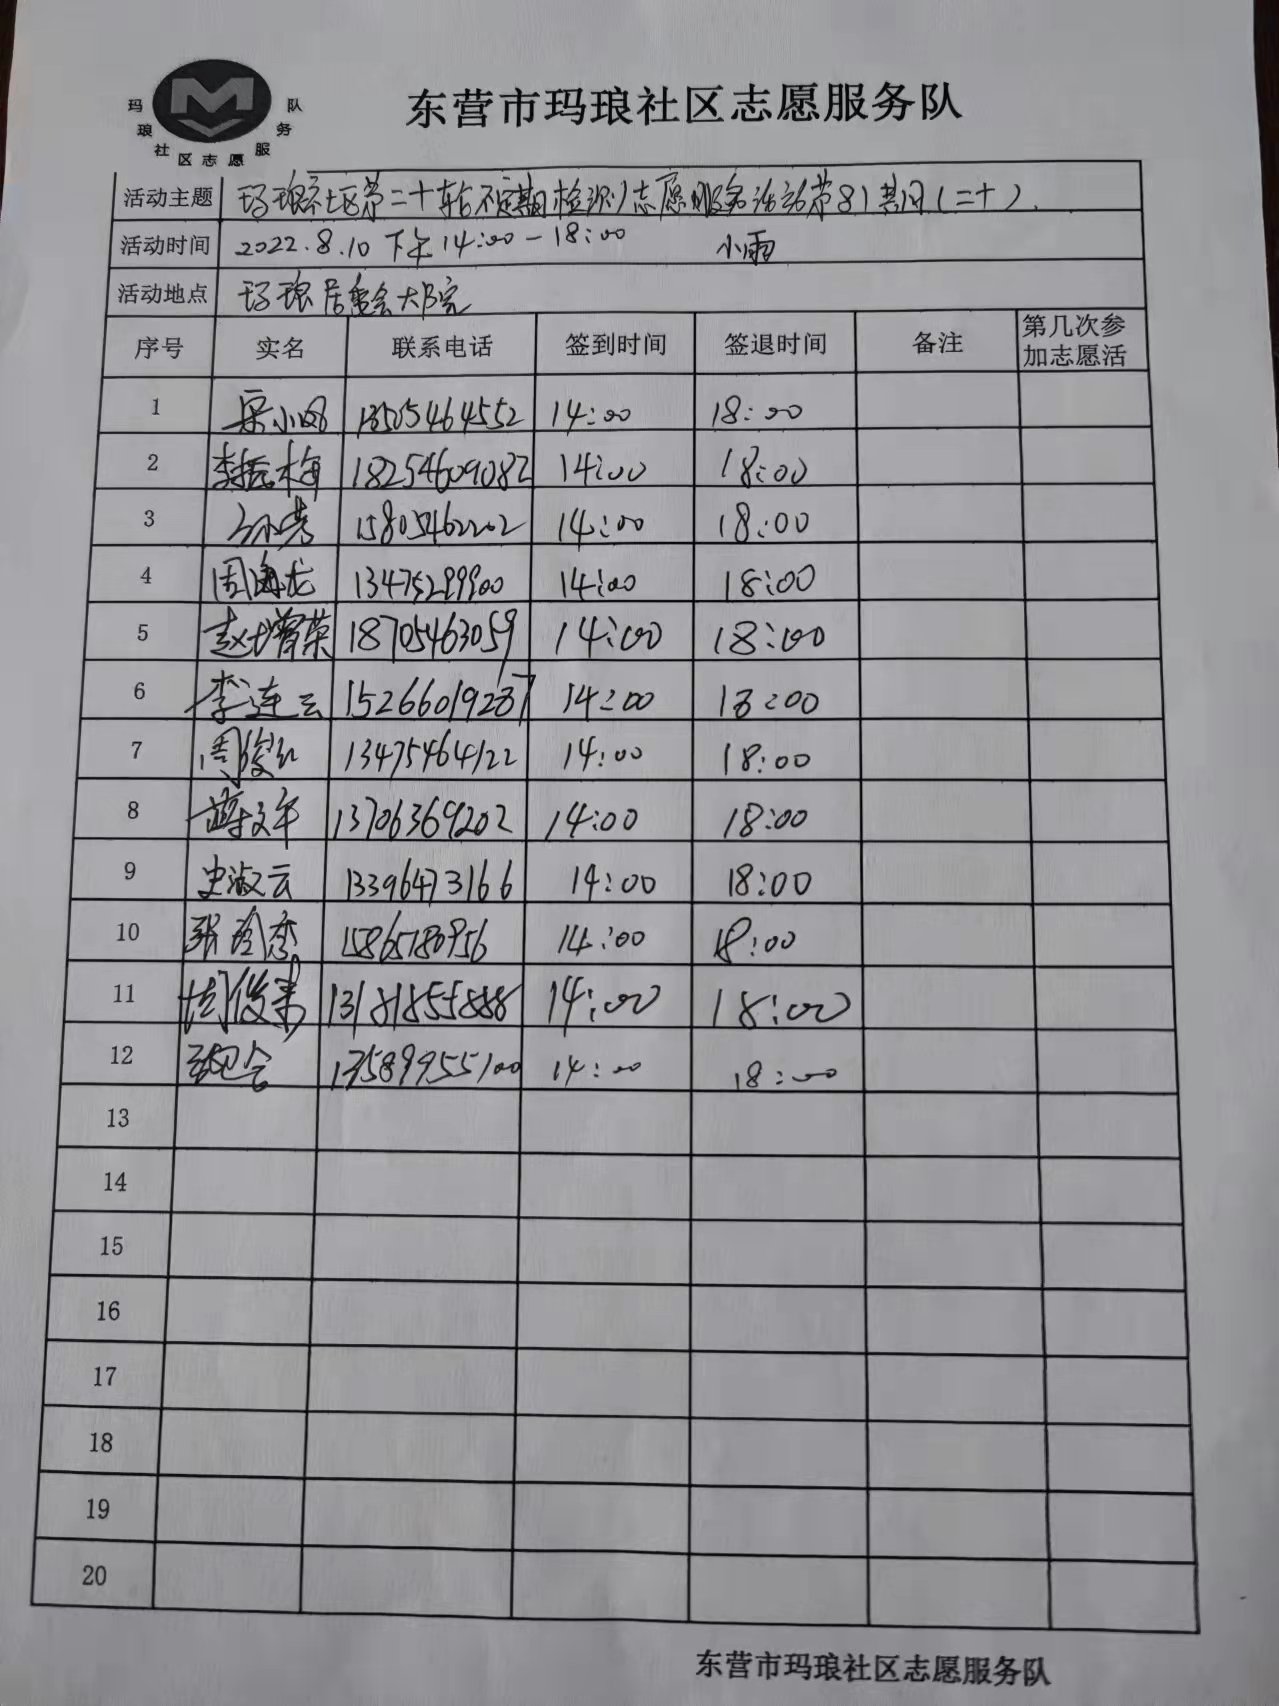 玛琅社区志愿服务队
东营市玛琅社区志愿服务队
活动主题 玛琅社区第二十轮不定期检测志愿服务活动第81期(二十).
活动时间 2022.8.10 下午 14:00-18:00 小雨
活动地点 玛琅居委会大院
序号 实名 联系电话 签到时间 签退时间 备注 第几次参
加志愿活
1 14:00 18:00
2 李振梅 18254609082 14:00 18:00
3 15805462202 14:00 18:00
4 周海龙 13475299900 14:00 18:00
5 赵增荣 18705463059 14:00 18:00
6 李连云 15266019287 14:00 18:00
7 周俊红 13475464122 14:00 18:00
8 薛文年 13706369202 14:00 18:00
9 史淑云 13396473166 14:00 18:00
10 15865180956 14:00 18:00
11 13181855888 14:00 18:00
12 13589955100 14:00 18:00
13
14
15
16
17
18
19
20
东营市玛琅社区志愿服务队